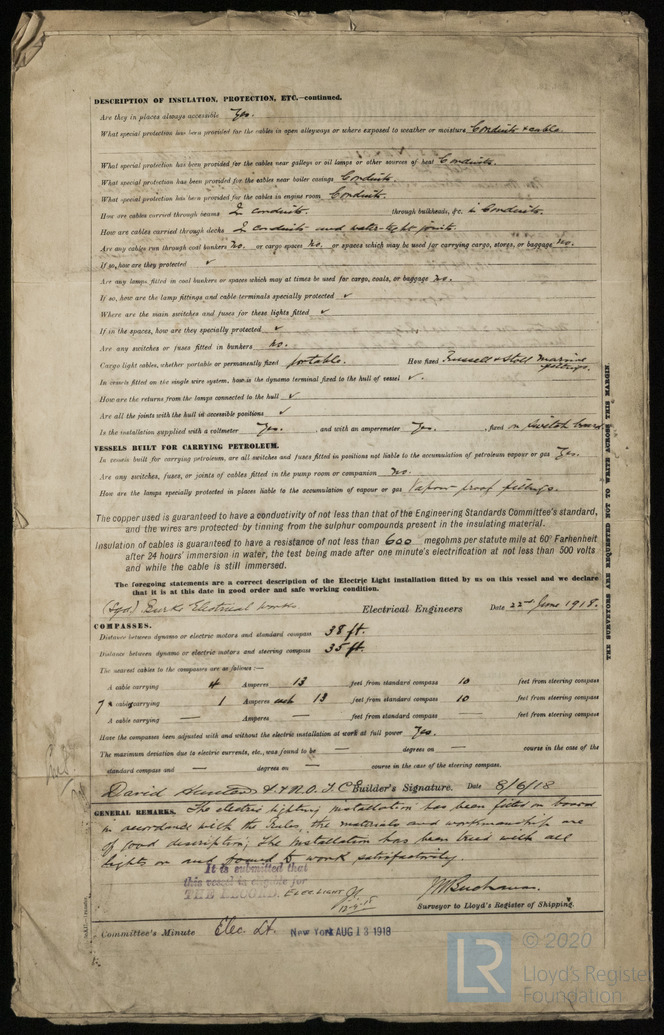 DESCRIPTION OF INSULATION, PROTECTION, ETC.—continued.
Are they in places always accessible Yes.
What special protection has been provided for the cables in open alleyways or where exposed to weather or moisture Conduits & cable.
What special protection has been provided for the cables near galleys or oil lamps or other sources of heat Conduits.
What special protection has been provided for the cables near boiler casings Conduits.
What special protection has been provided for the cables in engine room Conduits.
How are cables carried through beams In conduits. through bulkheads, &c. in Conduits.
How are cables carried through decks In conduits and water-tight joints.
Are any cables run through coal bunkers no. or cargo spaces no. or spaces which may be used for carrying cargo, stores, or baggage no.
If so, how are they protected ✓
Are any lamps fitted in coal bunkers or spaces which may at times be used for cargo, coals, or baggage no.
If so, how are the lamp fittings and cable terminals specially protected ✓
Where are the main switches and fuses for these lights fitted ✓
If in the spaces, how are they specially protected ✓
Are any switches or fuses fitted in bunkers no.
Cargo light cables, whether portable or permanently fixed portable. How fixed Russell & Stoll marine fittings.
In vessels fitted on the single wire system, how is the dynamo terminal fixed to the hull of vessel ✓.
How are the returns from the lamps connected to the hull ✓
Are all the joints with the hull in accessible positions ✓
Is the installation supplied with a voltmeter Yes. , and with an amperemeter Yes. , fixed on switch board
VESSELS BUILT FOR CARRYING PETROLEUM.
In vessels built for carrying petroleum, are all switches and fuses fitted in positions not liable to the accumulation of petroleum vapour or gas Yes.
Are any switches, fuses, or joints of cables fitted in the pump room or companion no.
How are the lamps specially protected in places liable to the accumulation of vapour or gas Vapour proof fittings.
The copper used is guaranteed to have a conductivity of not less than that of the Engineering Standards Committee's standard,
and the wires are protected by tinning from the sulphur compounds present in the insulating material.
Insulation of cables is guaranteed to have a resistance of not less than 600 megohms per statute mile at 60° Farhenheit
after 24 hours' immersion in water, the test being made after one minute's electrification at not less than 500 volts
and while the cable is still immersed.
The foregoing statements are a correct description of the Electric Light installation fitted by us on this vessel and we declare
that it is at this date in good order and safe working condition.
(sgd) Burke Electrical Works Electrical Engineers Date 22nd June 1918.
COMPASSES.
Distance between dynamo or electric motors and standard compass 38 ft.
Distance between dynamo or electric motors and steering compass 35 ft.
The nearest cables to the compasses are as follows:—
A cable carrying 4 Amperes 13 feet from standard compass 10 feet from steering compass
7 A cable carrying 1 Amperes each 13 feet from standard compass 10 feet from steering compass
A cable carrying — Amperes — feet from standard compass — feet from steering compass
Have the compasses been adjusted with and without the electric installation at work at full power Yes.
The maximum deviation due to electric currents, etc., was found to be — degrees on — course in the case of the
standard compass and — degrees on — course in the case of the steering compass.
David Builder's Signature. Date 8/6/18
GENERAL REMARKS. The electric lighting installation has been fitted on board
in accordance with the Rules, the materials and workmanship are
of good description, The installation has been tried with all
lights on and found to work satisfactorily.
It is submitted that
this vessel is eligible for
THE RECORD. ELEC LIGHT
J. W. Buchanan.
Surveyor to Lloyd's Register of Shipping.
Committee's Minute Elec. Lt. New York AUG 13 1918
THE SURVEYORS ARE REQUESTED NOT TO WRITE ACROSS THIS MARGIN.
LR
© 2020
Lloyd's Register
Foundation